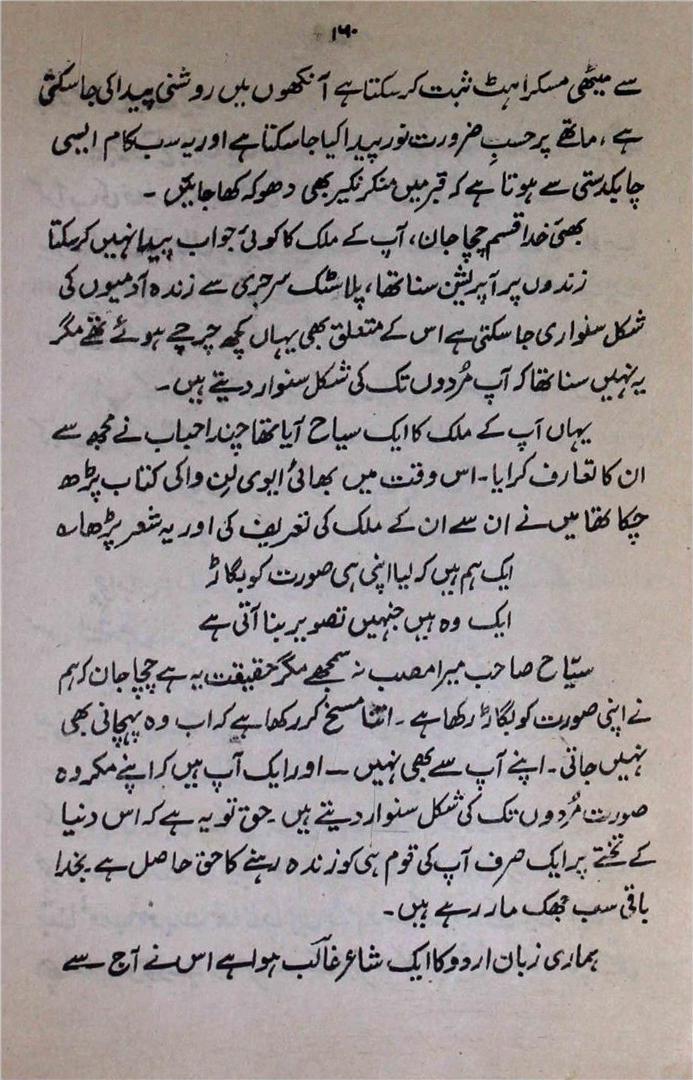 ۱۶۰
سے میٹھی مسکراہٹ ثبت کر سکتا ہے آنکھوں میں روشنی پیدا کی جاسکتی
ہے، ماتھے پر حسبِ ضرورت نور پیدا کیا جا سکتا ہے اور یہ سب کام ایسی
چابکدستی سے ہوتا ہے کہ قبر میں منکر نکیر بھی دھوکہ کھا جائیں ۔
بھئی خدا قسم چچا جان، آپ کے ملک کا کوئی جواب پیدا نہیں کر سکتا
زندوں پر آپریشن سنا تھا، پلاسٹک سرجری سے زندہ آدمیوں کی
شکل سنواری جا سکتی ہے اس کے متعلق بھی یہاں کچھ چرچے ہوئے تھے مگر
یہ نہیں سنا تھا کہ آپ مُردوں تک کی شکل سنوار دیتے ہیں ۔
یہاں آپ کے ملک کا ایک سیاح آیا تھا چند احباب نے مجھ سے
ان کا تعارف کرایا ۔ اس وقت میں بھائی ایوی لن وا کی کتاب پڑھ
چکا تھا میں نے ان سے ان کے ملک کی تعریف کی اور یہ شعر پڑھا؎
ایک ہم ہیں کہ لیا اپنی ہی صورت کو بگاڑ
ایک وہ ہیں جنہیں تصویر بنا آتی ہے
سیّاح صاحب میرا مطلب نہ سمجھے مگر حقیقت یہ ہے چچا جان کہ ہم
نے اپنی صورت کو بگاڑ رکھا ہے ۔ اتنا مسخ کر رکھا ہے کہ اب وہ پہچانی بھی
نہیں جاتی ۔ اپنے آپ سے بھی نہیں — اور ایک آپ ہیں کہ اپنے مکروہ
صورت مُردوں تک کی شکل سنوار دیتے ہیں ۔ حق تو یہ ہے کہ اس دنیا
کے تختے پر ایک صرف آپ کی قوم ہی کو زندہ رہنے کا حق حاصل ہے بخدا
باقی سب جھک مار رہے ہیں ۔
ہماری زبان اردو کا ایک شاعر غالب ہوا ہے اس نے آج سے